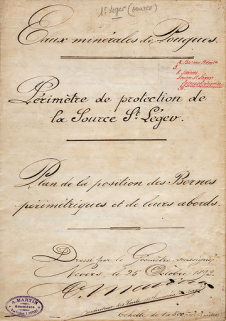 St Léger (source)
Eaux minérales de Pougues.
Périmètre de protection de
la Source St Léger.
Plan de la position des Bornes
périmétriques et de leurs abords.
Dressé par le Géomètre soussigné
Nevers, le 24 Octobre 1892
A. MARTIN
Échelle de